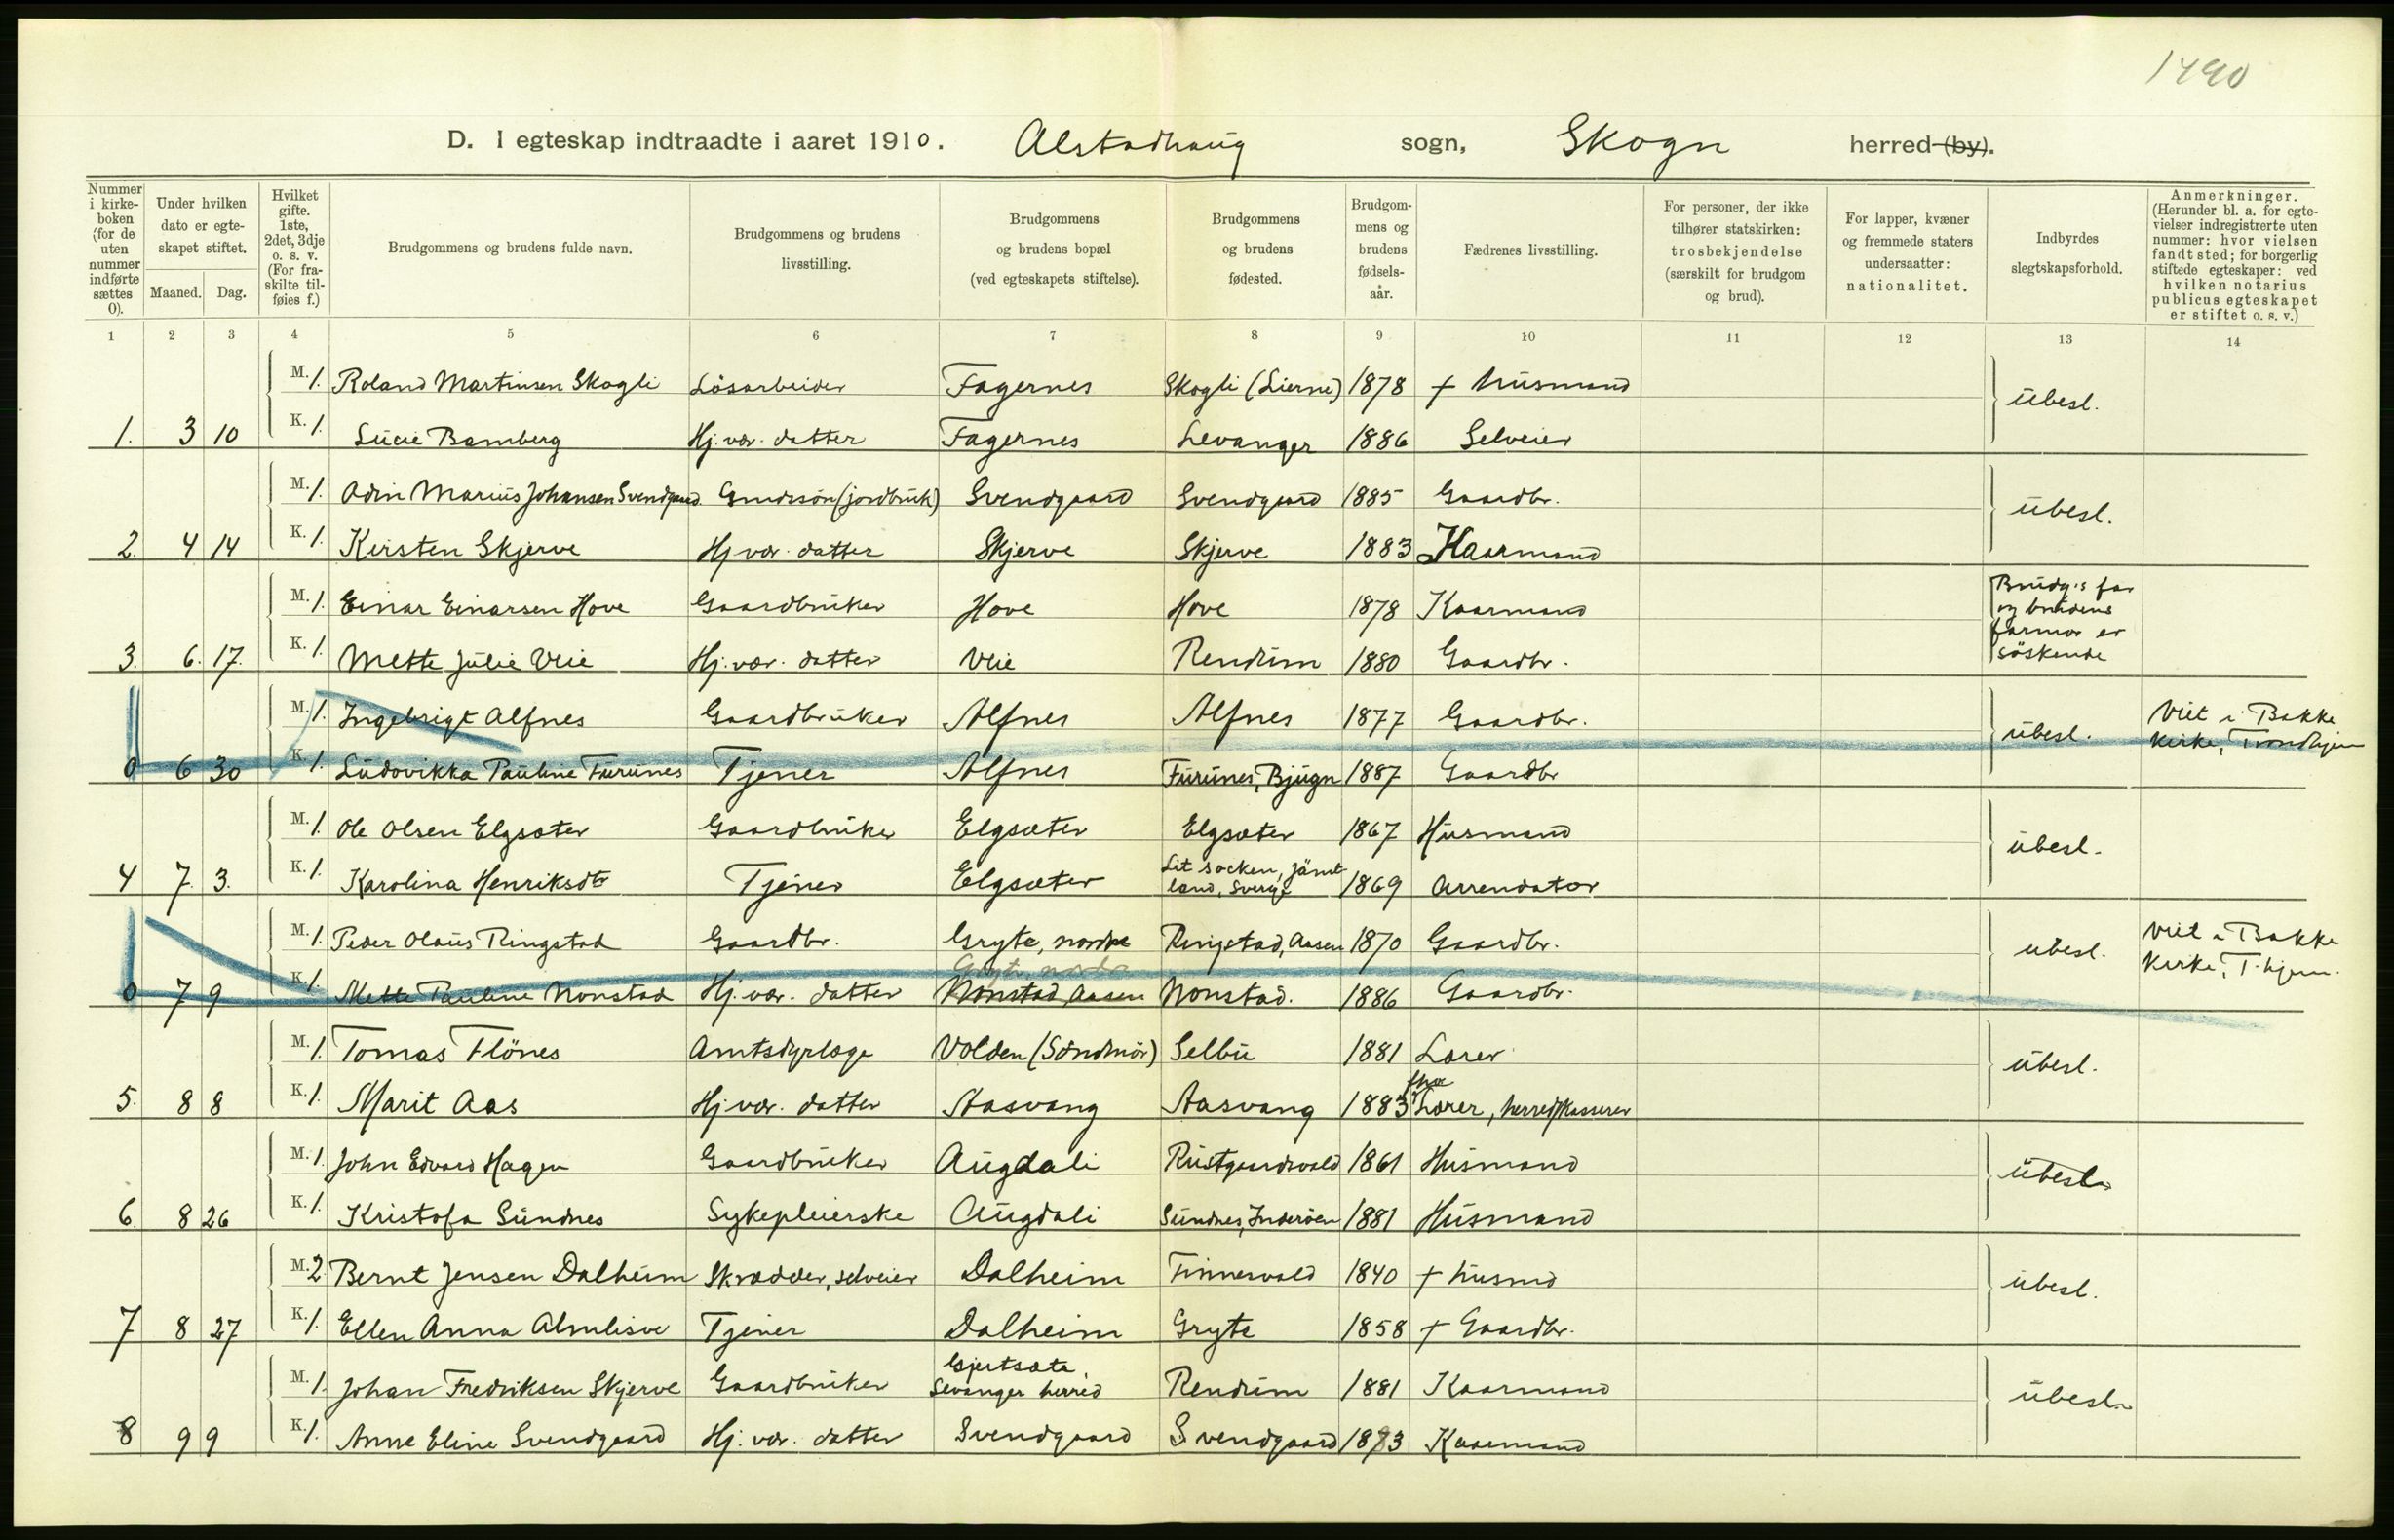 1490
D. I egteskap indtraadte i aaret 1910. Alstadhaug sogn, Skogn herred (by).
Nummer i kirke-boken (for de uten nummer indførte sættes 0).
Under hvilken dato er egte-skapet stiftet.
Maaned. Dag.
Hvilket gifte. 1ste, 2det, 3dje o. s. v. (For fra-skilte til-føies f.)
Brudgommens og brudens fulde navn.
Brudgommens og brudens livsstilling.
Brudgommens og brudens bopæl (ved egteskapets stiftelse).
Brudgommens og brudens fødested.
Brudgom-mens og brudens fødsels-aar.
Fædrenes livsstilling.
For personer, der ikke tilhører statskirken: trosbekjendelse (særskilt for brudgom og brud).
For lapper, kvæner og fremmede staters undersaatter: nationalitet.
Indbyrdes slegtskapsforhold.
Anmerkninger. (Herunder bl. a. for egte-vielser indregistrerte uten nummer: hvor vielsen fandt sted; for borgerlig stiftede egteskaper: ved hvilken notarius publicus egteskapet er stiftet o. s. v.)
1 2 3 4 5 6 7 8 9 10 11 12 13 14
M. 1. Roland Martinsen Skogli Lösarbeider Fagernes Skogli (Lierne) 1878 + husmand
ubesl.
1. 3 10 K. 1. Lucie Bamberg Hj. vær. datter Fagernes Levanger 1886 Selveier
M. 1. Odin Marius Johansen Svendgaard Gmdrsön (jordbruk) Svendgaard Svendgaard 1885 Gaardbr.
ubesl.
2. 4 14 K. 1. Kirsten Skjerve Hj vær. datter Skjerve Skjerve 1883 Kaarmand
M. 1. Einar Einarsen Hove Gaardbruker Hove Hove 1878 Kaarmand
Brudg's far
og brudens
farmor er
söskende
3. 6. 17. K. 1. Mette Julie Veie Hj. vær. datter Veie Rendum 1880 Gaardbr.
M. 1. Ingebrigt Alfnes Gaardbruker Alfnes Alfnes 1877 Gaardbr.
ubesl. Viet i Bakke
kirke, Trondhjem
0 6 30 K. 1. Ludovikka Pauline Furunes Tjener Alfnes Furunes, Bjugn 1887 Gaardbr
M. 1. Ole Olsen Elgsæter Gaardbruker Elgsæter Elgsæter 1867 Husmand
ubesl.
4 7. 3. K. 1. Karolina Henriksdt Tjener Elgsæter Lit socken, Jämt
land, Sverge 1869 Arrendator
M. 1. Peder Olaus Ringstad Gaardbr. Gryte, nordre Ringstad, Aasen 1870 Gaardbr.
ubesl. Viet i Bakke
Kirke, T.hjem.
Gryte, nordre
0 7 9 K. 1. Mette Pauline Nonstad Hj. vær. datter Nonstad Aasen Nonstad. 1886 Gaardbr.
M. 1. Tomas Flönes Amtsdyrlæge Volden (Söndmör) Selbu 1881 Lærer
ubesl.
5. 8 8 K. 1. Marit Aas Hj vær. datter Aasvang Aasvang 1883 fhv Lærer, herredskasserer
M. 1. John Edvard Hagen Gaardbruker Augdali Rustgaardsvald 1861 Husmand
ubesl.
6. 8 26 K. 1. Kristofa Sundnes Sykepleierske Augdali Sundnes, Inderöen 1881 Husmand
M. 2 Bernt Jensen Dalheim Skrædder, selveier Dalheim Finnesvald 1840 + husmd
ubesl.
7 8 27 K. 1. Ellen Anna Almlisve Tjener Dalheim Gryte 1858 + Gaardbr.
Gjertsæte,
M. 1. Johan Fredriksen Skjerve Gaardbruker Levanger herred Rendum 1881 Kaarmand
ubesl.
8 9 9 K. 1. Anne Eline Svendgaard Hj. vær. datter Svendgaard Svendgaard 1883 Kaarmand